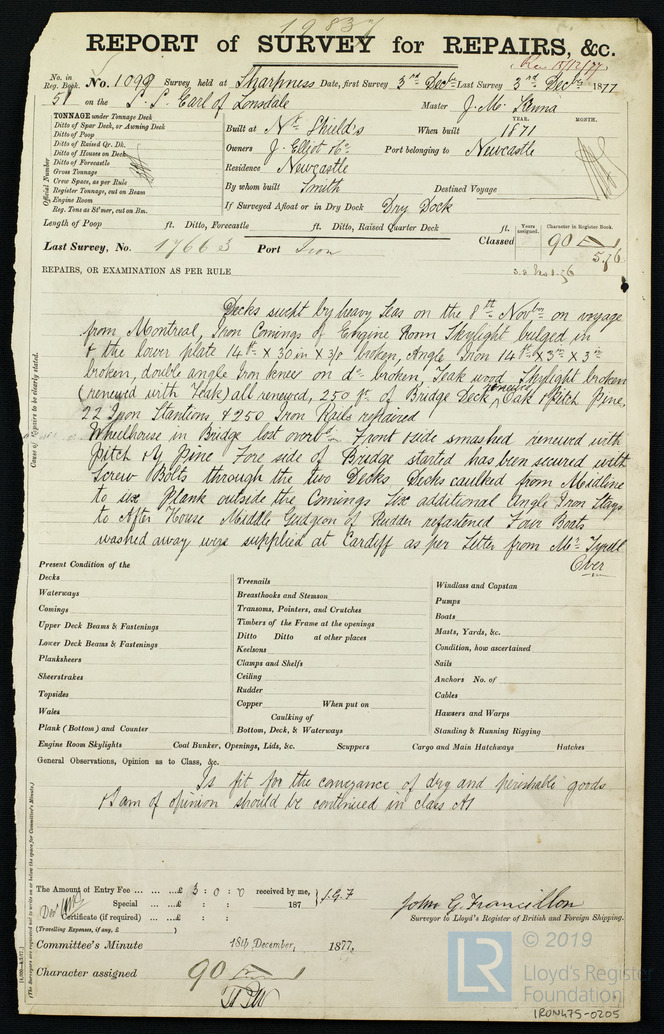 19837
REPORT of SURVEY for REPAIRS, &c.
Rec 15/12/77
No. in Reg. Book. No. 1099 Survey held at Sharpness Date, first Survey 3rd Decbr Last Survey 3rd Decbr 1877
51 on the S.S. Earl of Lonsdale Master J. Mc Kenna
TONNAGE under Tonnage Deck
Ditto of Spar Deck, or Awning Deck
Ditto of Poop
Ditto of Raised Qr. Dk.
Ditto of Houses on Deck
Ditto of Forecastle
Gross Tonnage
Crew Space, as per Rule
Register Tonnage, cut on Beam
Engine Room
Reg. Tons as St'mer, cut on Bm.
Official Number
YEAR. MONTH.
Built at Nth Shields When built 1871
Owners J. Elliot & Co Port belonging to Newcastle
Residence Newcastle
By whom built Smith Destined Voyage
If Surveyed Afloat or in Dry Dock Dry Dock
Length of Poop ft. Ditto, Forecastle ft. Ditto, Raised Quarter Deck ft.
Last Survey, No. 17663 Port Iron Classed
Years assigned. Character in Register Book.
90 A 1
5.76
REPAIRS, OR EXAMINATION AS PER RULE
Cause of Repairs to be clearly stated.
Decks swept by heavy Seas on the 8th Novbr on voyage
from Montreal, Iron Comings of Engine Room Skylight bulged in
& the lower plate 14ft x 30in x 3/8 broken, Angle Iron 14ft x 3in x 3in
broken, double angle Iron knees on do broken, Teak wood Skylight broken
(renewed with Teak) all renewed, 250 ft of Bridge Deck renewed Oak & Pitch Pine,
22 Iron Stantions & 250 Iron Rails repaired
Wheelhouse in Bridge lost overbd Front & side smashed renewed with
Pitch & Y Pine Fore side of Bridge started has been secured with
Screw Bolts through the two Decks Decks caulked from Midline
to six Plank outside the Comings Six additional Angle Iron Stays
to After House Middle Gudgeon of Rudder refastened Four Boats
washed away were supplied at Cardiff as per Letter from Mr Tyndl
Over
Present Condition of the
Decks
Waterways
Comings
Upper Deck Beams & Fastenings
Lower Deck Beams & Fastenings
Planksheers
Sheerstrakes
Topsides
Wales
Plank (Bottom) and Counter
Treenails
Breasthooks and Stemson
Transoms, Pointers, and Crutches
Timbers of the Frame at the openings
Ditto Ditto at other places
Keelsons
Clamps and Shelfs
Ceiling
Rudder
Copper When put on
Caulking of
Bottom, Deck, & Waterways
Windlass and Capstan
Pumps
Boats
Masts, Yards, &c.
Condition, how ascertained
Sails
Anchors No. of
Cables
Hawsers and Warps
Standing & Running Rigging
Engine Room Skylights Coal Bunker, Openings, Lids, &c. Scuppers Cargo and Main Hatchways Hatches
General Observations, Opinion as to Class, &c.
Is fit for the conveyance of dry and perishable goods
& I am of opinion should be continued in class A1
(The Surveyors are requested not to write on or below the space for Committee's Minute.)
The Amount of Entry Fee ... ... ...£ 3 : 0 : 0 received by me, J.G.F
Special ... ...£ : : 187
Certificate (if required) ... ...£ : :
(Travelling Expenses, if any, £ )
John G. Francillon
Surveyor to Lloyd's Register of British and Foreign Shipping.
Committee's Minute 18th December, 1877.
Character assigned 90 A 1
© 2019
LR
Lloyd's Register
Foundation
IRON475-0205